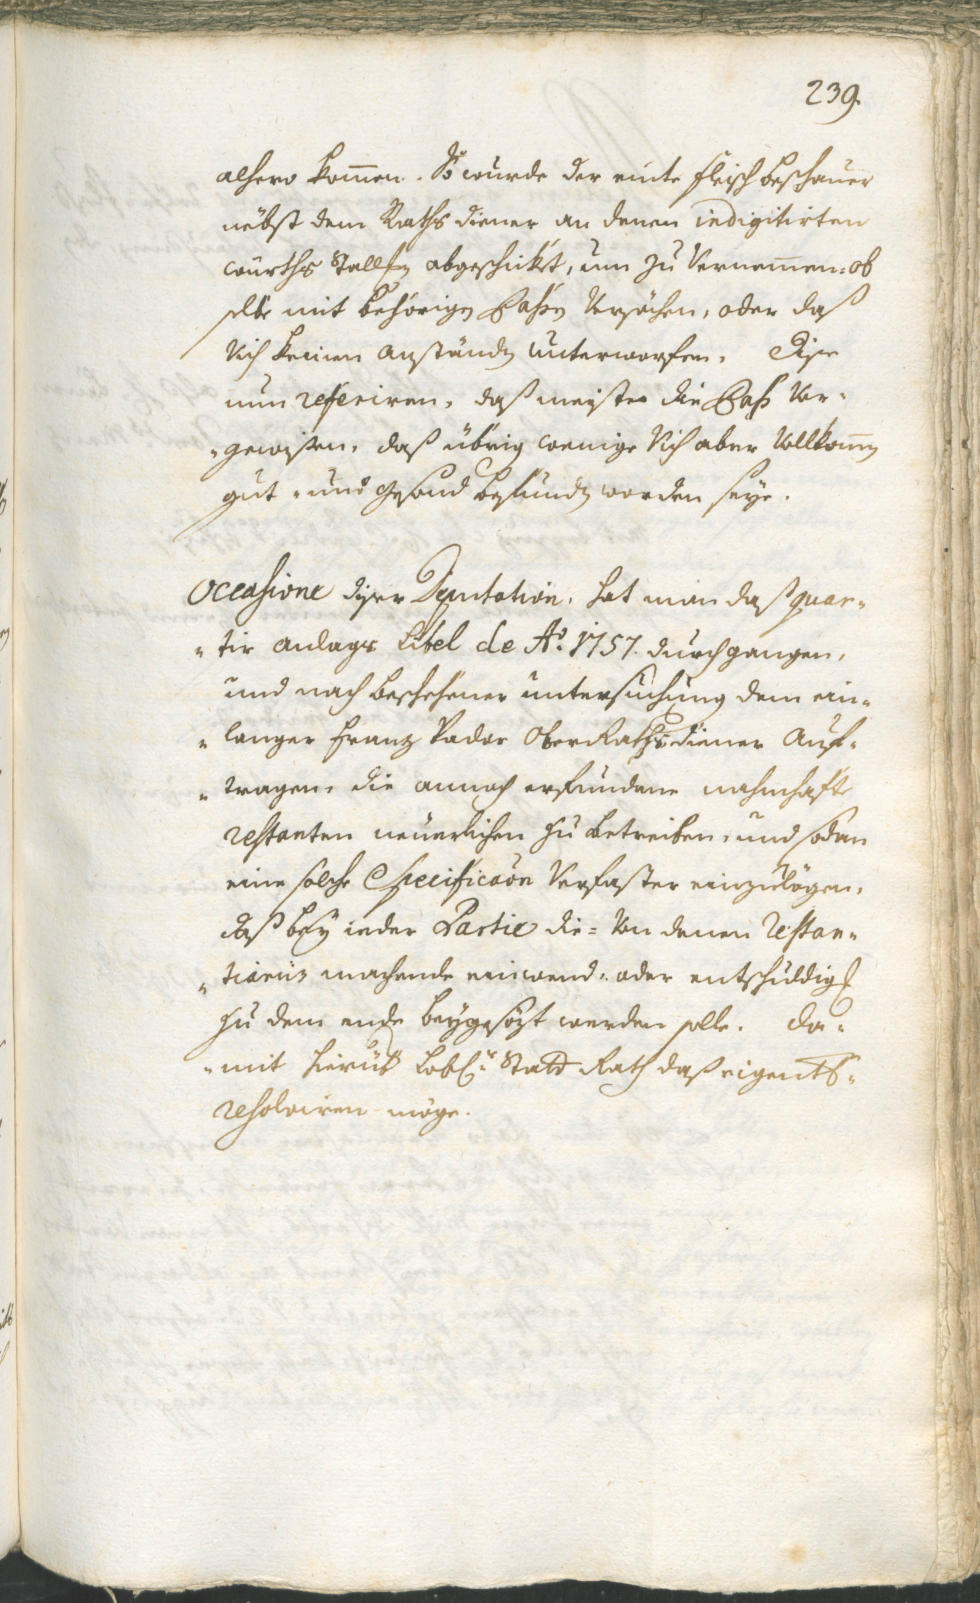 239.
alhero kom̅en. So wurde der eine fleisch beschauer
nebst dem Raths diener an denen indigitirten
würths Stallen abgeschickt, um zu Vernem̅en: ob
selbe mit behörigen Passen Versöchen, oder daß
Vich keinen anständen unterworfen. Dise
nun referiren, daß meister die Pass Vor-
-gewisen, daß übrig wenige Vich aber Vollkom̅en
gut- und gesund befunden worden seye.
Occasione diser Deputation, hat man daß quar-
-tir anlags Libel de Aõ. 1757. durchgangen,
und nach beschehener untersuchung dem ein-
-langer Franz Vador Ober Raths diener Auf-
-tragen, die annoch erfundene nahmhafte
restanten neuerlichen zu betreiben, und sodan
eine solche Specification Verfaster einzulögen,
daß bey ieder Partie die- Von denen Restan-
-tiariis machende einwend- oder entschuldig
zu dem ende beygesözt werden solle. Da-
-mit hierüb Lobl: Statt Rath daß eigents-
resolviren möge.